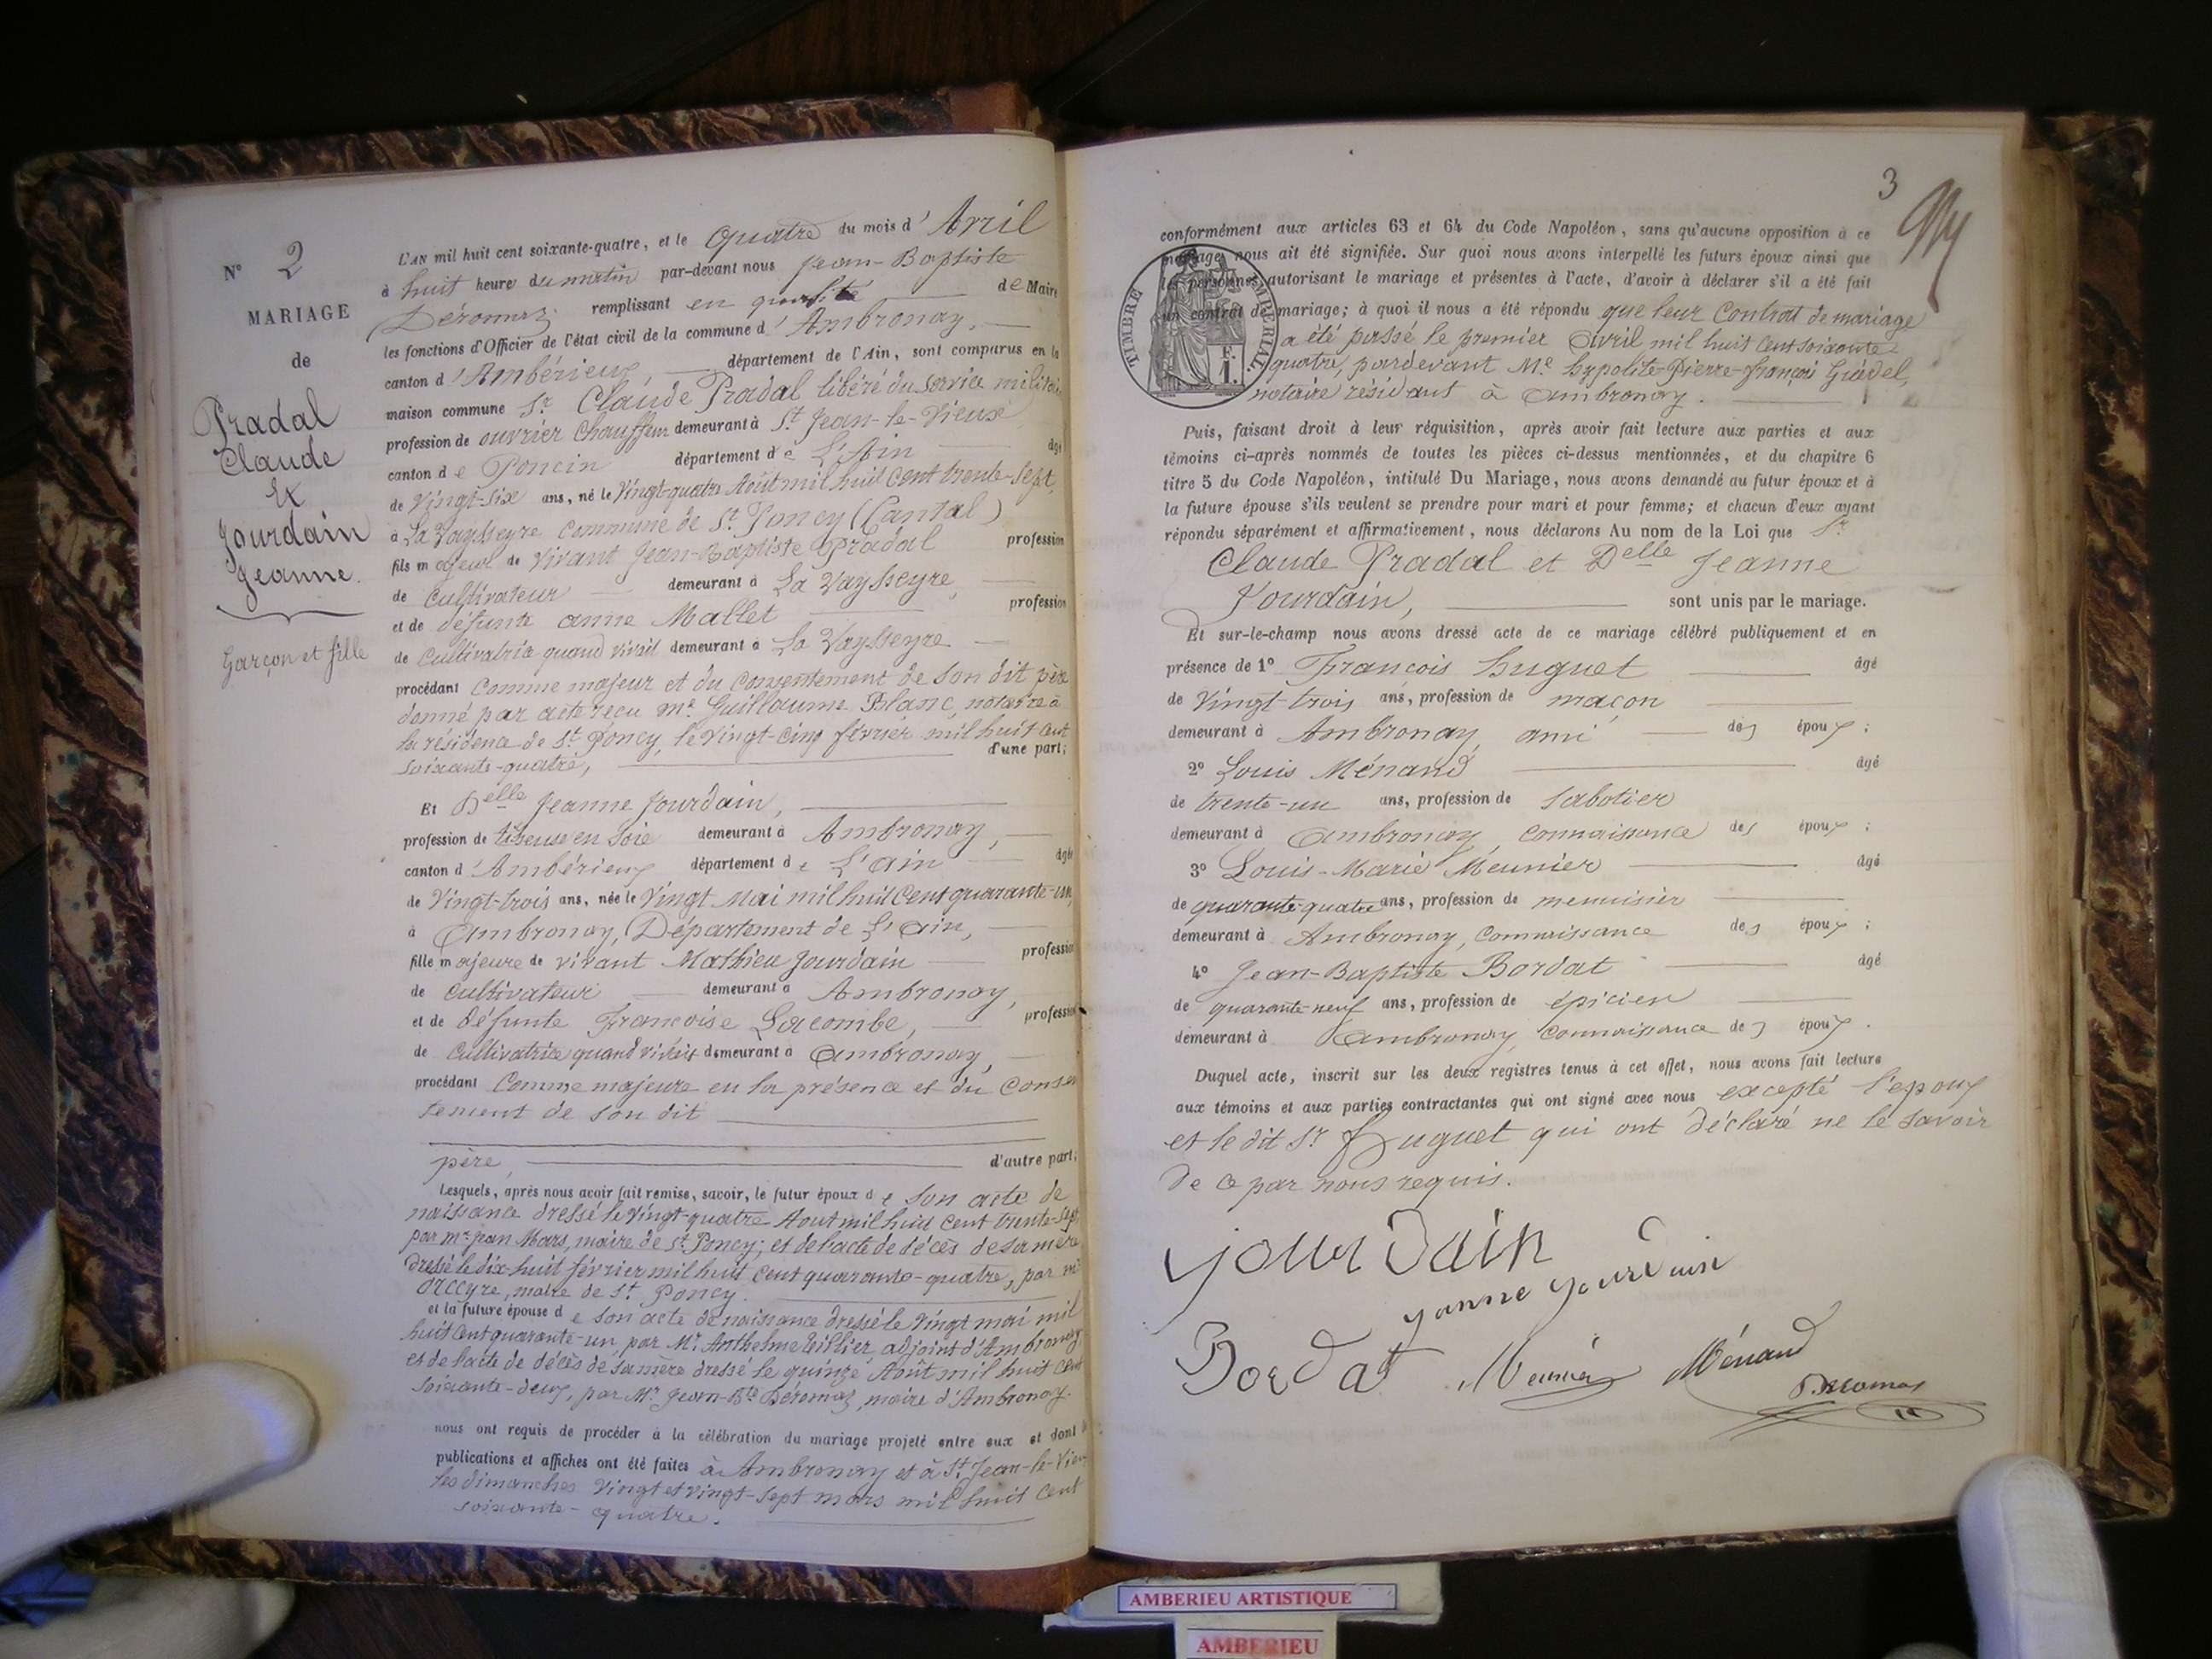 N° 2
MARIAGE
de
Pradal
Claude
Et
Jourdain
Jeanne.
Garçon et fille
L'AN mil huit cent soixante-quatre, et le quatre du mois d'Avril
à huit heure du matin par-devant nous Jean-Baptiste
Déromas remplissant en qualité de Maire
les fonctions d'Officier de l'état civil de la commune d'Ambronay,
canton d'Ambérieux, département de l'Ain, sont comparus en la
maison commune Sr Claude Pradal libéré du service militaire
profession de ouvrier Chauffeur demeurant à St Jean-le-Vieux
canton de Poncin département de L'Ain âgé
de Vingt-six ans, né le Vingt-quatre Août mil huit cent trente-sept,
à La Vaysseyre Commune de St Poncy (Cantal)
fils majeur de vivant Jean-Baptiste Pradal profession
de Cultivateur demeurant à La Vaysseyre,
et de défunte anne Mallet profession
de Cultivatrice quand vivait demeurant à La Vaysseyre
procédant Comme majeur et du consentement de son dit père
donné par acte reçu me Guillaume Blanc, notaire à
la résidence de St Poncy, le vingt-cinq février mil huit cent
soixante-quatre, d'une part;
Et Delle Jeanne Jourdain,
profession de tireuse en soie demeurant à Ambronay,
canton d'Ambérieux département de L'ain âgée
de Vingt-trois ans, née le Vingt Mai mil huit cent quarante-un,
à Ambronay, Département de L'ain,
fille majeure de vivant Mathieu Jourdain profession
de Cultivateur demeurant à Ambronay,
et de défunte Françoise Lacombe, profession
de Cultivatrice quand vivait demeurant à Ambronay,
procédant Comme majeure en la présence et du Consen
tement de son dit
père, d'autre part;
Lesquels, après nous avoir fait remise, savoir, le futur époux de son acte de
naissance dressé le vingt-quatre Aout mil huit cent trente-sept
par mr jean Mars, maire de St Poncy; et de l'acte de décès de sa mère
dressé le dix-huit février mil huit cent quarante-quatre, par mr
maire de St Poncy.
et la future épouse de son acte de naissance dressé le vingt mai mil
huit cent quarante-un, par Mr Anthelme adjoint d'Ambronay
et de l'acte de décès de sa mère dressé le quinze Août mil huit cent
soixante-deux, par Mr Jean-Bte Déromas, maire d'Ambronay.
nous ont requis de procéder à la célébration du mariage projeté entre eux et dont
publications et affiches ont été faites à Ambronay et à St Jean-le-Vieux
les dimanches vingt et vingt-sept mars mil huit cent
soixante-quatre.
3
conformément aux articles 63 et 64 du Code Napoléon, sans qu'aucune opposition à ce
mariage nous ait été signifiée. Sur quoi nous avons interpellé les futurs époux ainsi que
les personnes autorisant le mariage et présentes à l'acte, d'avoir à déclarer s'il a été fait
un contrat de mariage; à quoi il nous a été répondu que leur Contrat de mariage
a été passé le premier avril mil huit cent soixante
quatre, pardevant Me hypolite-Pierre-françois
notaire résidant à Ambronay.
TIMBRE IMPERIAL
F.
1.
Puis, faisant droit à leur réquisition, après avoir fait lecture aux parties et aux
témoins ci-après nommés de toutes les pièces ci-dessus mentionnées, et du chapitre 6
titre 5 du Code Napoléon, intitulé Du Mariage, nous avons demandé au futur époux et à
la future épouse s'ils veulent se prendre pour mari et pour femme; et chacun d'eux ayant
répondu séparément et affirmativement, nous déclarons Au nom de la Loi que Sr
Claude Pradal et Delle Jeanne
Jourdain, sont unis par le mariage.
Et sur-le-champ nous avons dressé acte de ce mariage célébré publiquement et en
présence de 1° François huguet âgé
de Vingt-trois ans, profession de maçon
demeurant à Ambronay, ami des époux;
2° Louis Ménand âgé
de trente-un ans, profession de sabotier
demeurant à Ambronay, connaissance des époux;
3° Louis-Marie Meunier âgé
de quarante-quatre ans, profession de menuisier
demeurant à Ambronay, connaissance des époux;
4° Jean-Baptiste Bordat âgé
de quarante-neuf ans, profession de épicier
demeurant à Ambronay, connaissance des époux.
Duquel acte, inscrit sur les deux registres tenus à cet effet, nous avons fait lecture
aux témoins et aux parties contractantes qui ont signé avec nous excepté l'époux
et le dit Sr huguet qui ont déclaré ne le savoir
de ce par nous requis.
jourdain
janne jourdain
Bordat Meunier Ménand
Déromas
AMBERIEU ARTISTIQUE
AMBERIEU